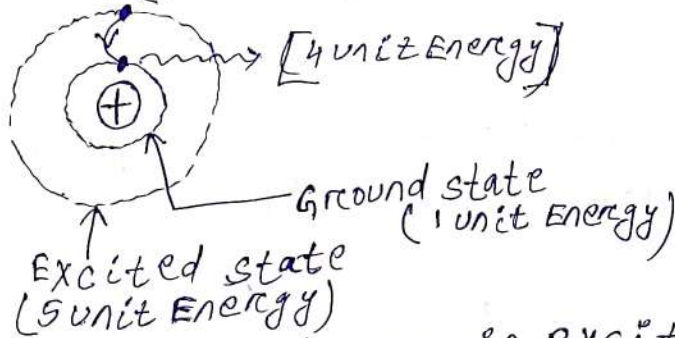 [4 unit Energy]
+
Ground state
(1 unit Energy)
Excited state
(5 unit Energy)